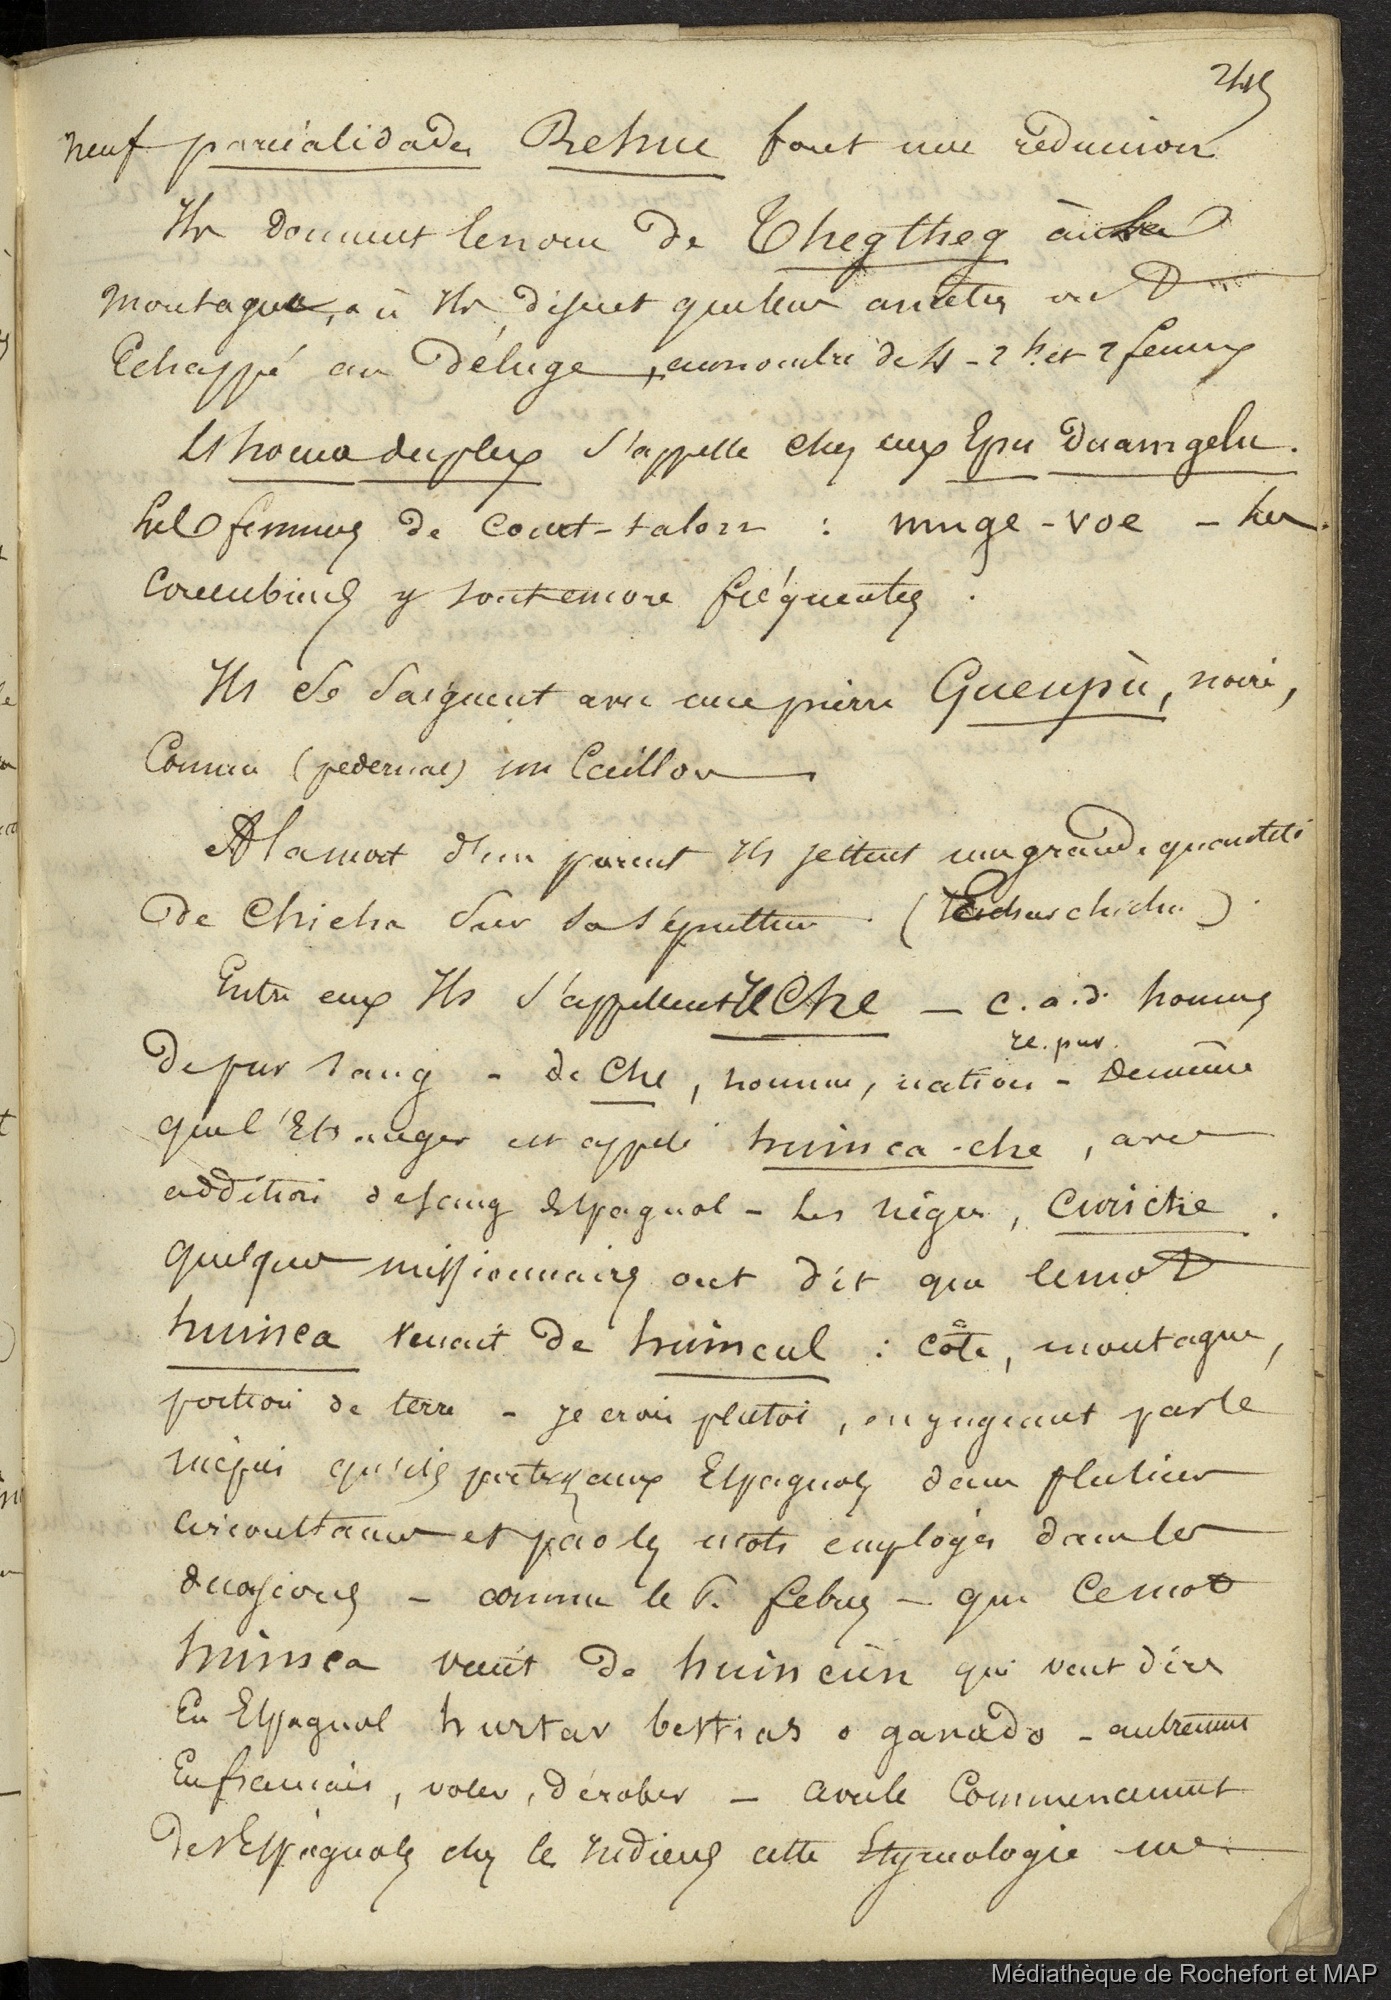 245
neuf parcialidades Rehue font une reduccion
Ils donnent le nom de Thegtheg à la
montagne, où Ils disent que leurs ancetres ont
Echappé au Déluge, au nombre de 4 - 2 h. et 2 femmes
s'appelle chez eux Epu Duamgelu.
Les femmes de court-talon : muge-voe - Les
Concubines y sont encore fréquentes.
Ils se saignent avec une pierre Gueupù, noire,
Comme (pedernal) un Caillou
A la mort d'un parent Ils jettent une grande quantité
de Chicha sur sa sépulture. (chicha).
Entre eux Ils s'appellent Re Che - c.a.d. hommes
re. pur.
de pur sang - de Che, homme, nation - De même
que l'Etranger est appelé huinca-che, avec
addition de sang Espagnol - Les nègres, Curiche.
Quelques missionnaires ont dit que le mot
huinca venait de huincul : côte, montagne,
portion de terre - je crois plutot, en jugeant par le
mépris qu'ils portent aux Espagnols dans plusieurs
circonstances et par les mots employés dans les
occasions - comme le P. Febres - que Ce mot
huinca vient de huincùn qui veut dire
En Espagnol hurtar bestias o ganado - autrement
En francais, voler, dérober - avec le Commencement
des Espagnols chez les Indiens cette Etymologie me
Médiathèque de Rochefort et MAP